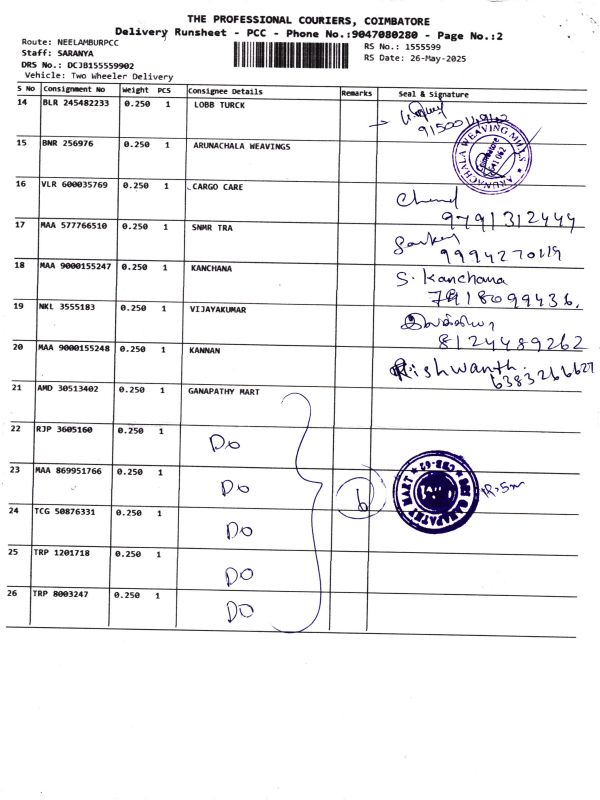 THE PROFESSIONAL COURIERS, COIMBATORE
Delivery Runsheet - PCC - Phone No.:9047080280 - Page No.:2
Route: NEELAMBURPCC
Staff: SARANYA
DRS No.: DCJB155559902
Vehicle: Two Wheeler Delivery
RS No.: 1555599
RS Date: 26-May-2025
S No Consignment No Weight PCS Consignee Details Remarks Seal & Signature
14 BLR 245482233 0.250 1 LOBB TURCK
15 BNR 256976 0.250 1 ARUNACHALA WEAVINGS
ARUNACHALA WEAVING MILLS
16 VLR 600035769 0.250 1 CARGO CARE
9791312444
17 MAA 577766510 0.250 1 SNMR TRA
18 MAA 9000155247 0.250 1 KANCHANA S. Kanchana
19 NKL 3555183 0.250 1 VIJAYAKUMAR
8124489262
20 MAA 9000155248 0.250 1 KANNAN Rishwanth.
6383266627
21 AMD 30513402 0.250 1 GANAPATHY MART
22 RJP 3605160 0.250 1 DO
23 MAA 869951766 0.250 1 DO 6
SRI GANAPATHY MART
24 TCG 50876331 0.250 1 DO
25 TRP 1201718 0.250 1 DO
26 TRP 8003247 0.250 1 DO